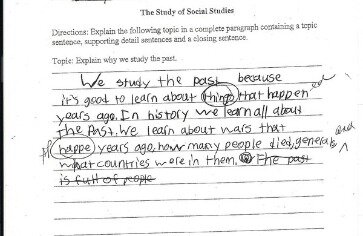 The Study of Social Studies
Directions: Explain the following topic in a complete paragraph containing a topic
sentence, supporting detail sentences and a closing sentence.
Topic: Explain why we study the past.
We study the past because
it's good to learn about thing that happen ed
years ago. In history we learn all about
the Past. We learn about wars that
happe years ago. how many people died, generals and
what countries were in them. The past
is full of people